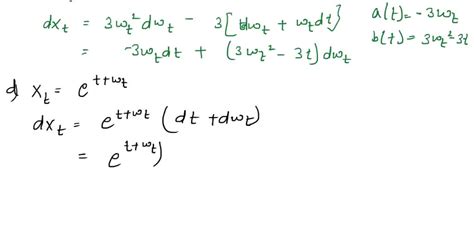 dX_t = 3W_t² dW_t - 3[tdW_t + W_t dt} a(t) = -3W_t
= -3W_t dt + (3W_t² - 3t) dW_t b(t) = 3W_t² - 3t
d) X_t = e^{t+W_t}
dX_t = e^{t+W_t} (dt + dW_t)
= e^{t+W_t})